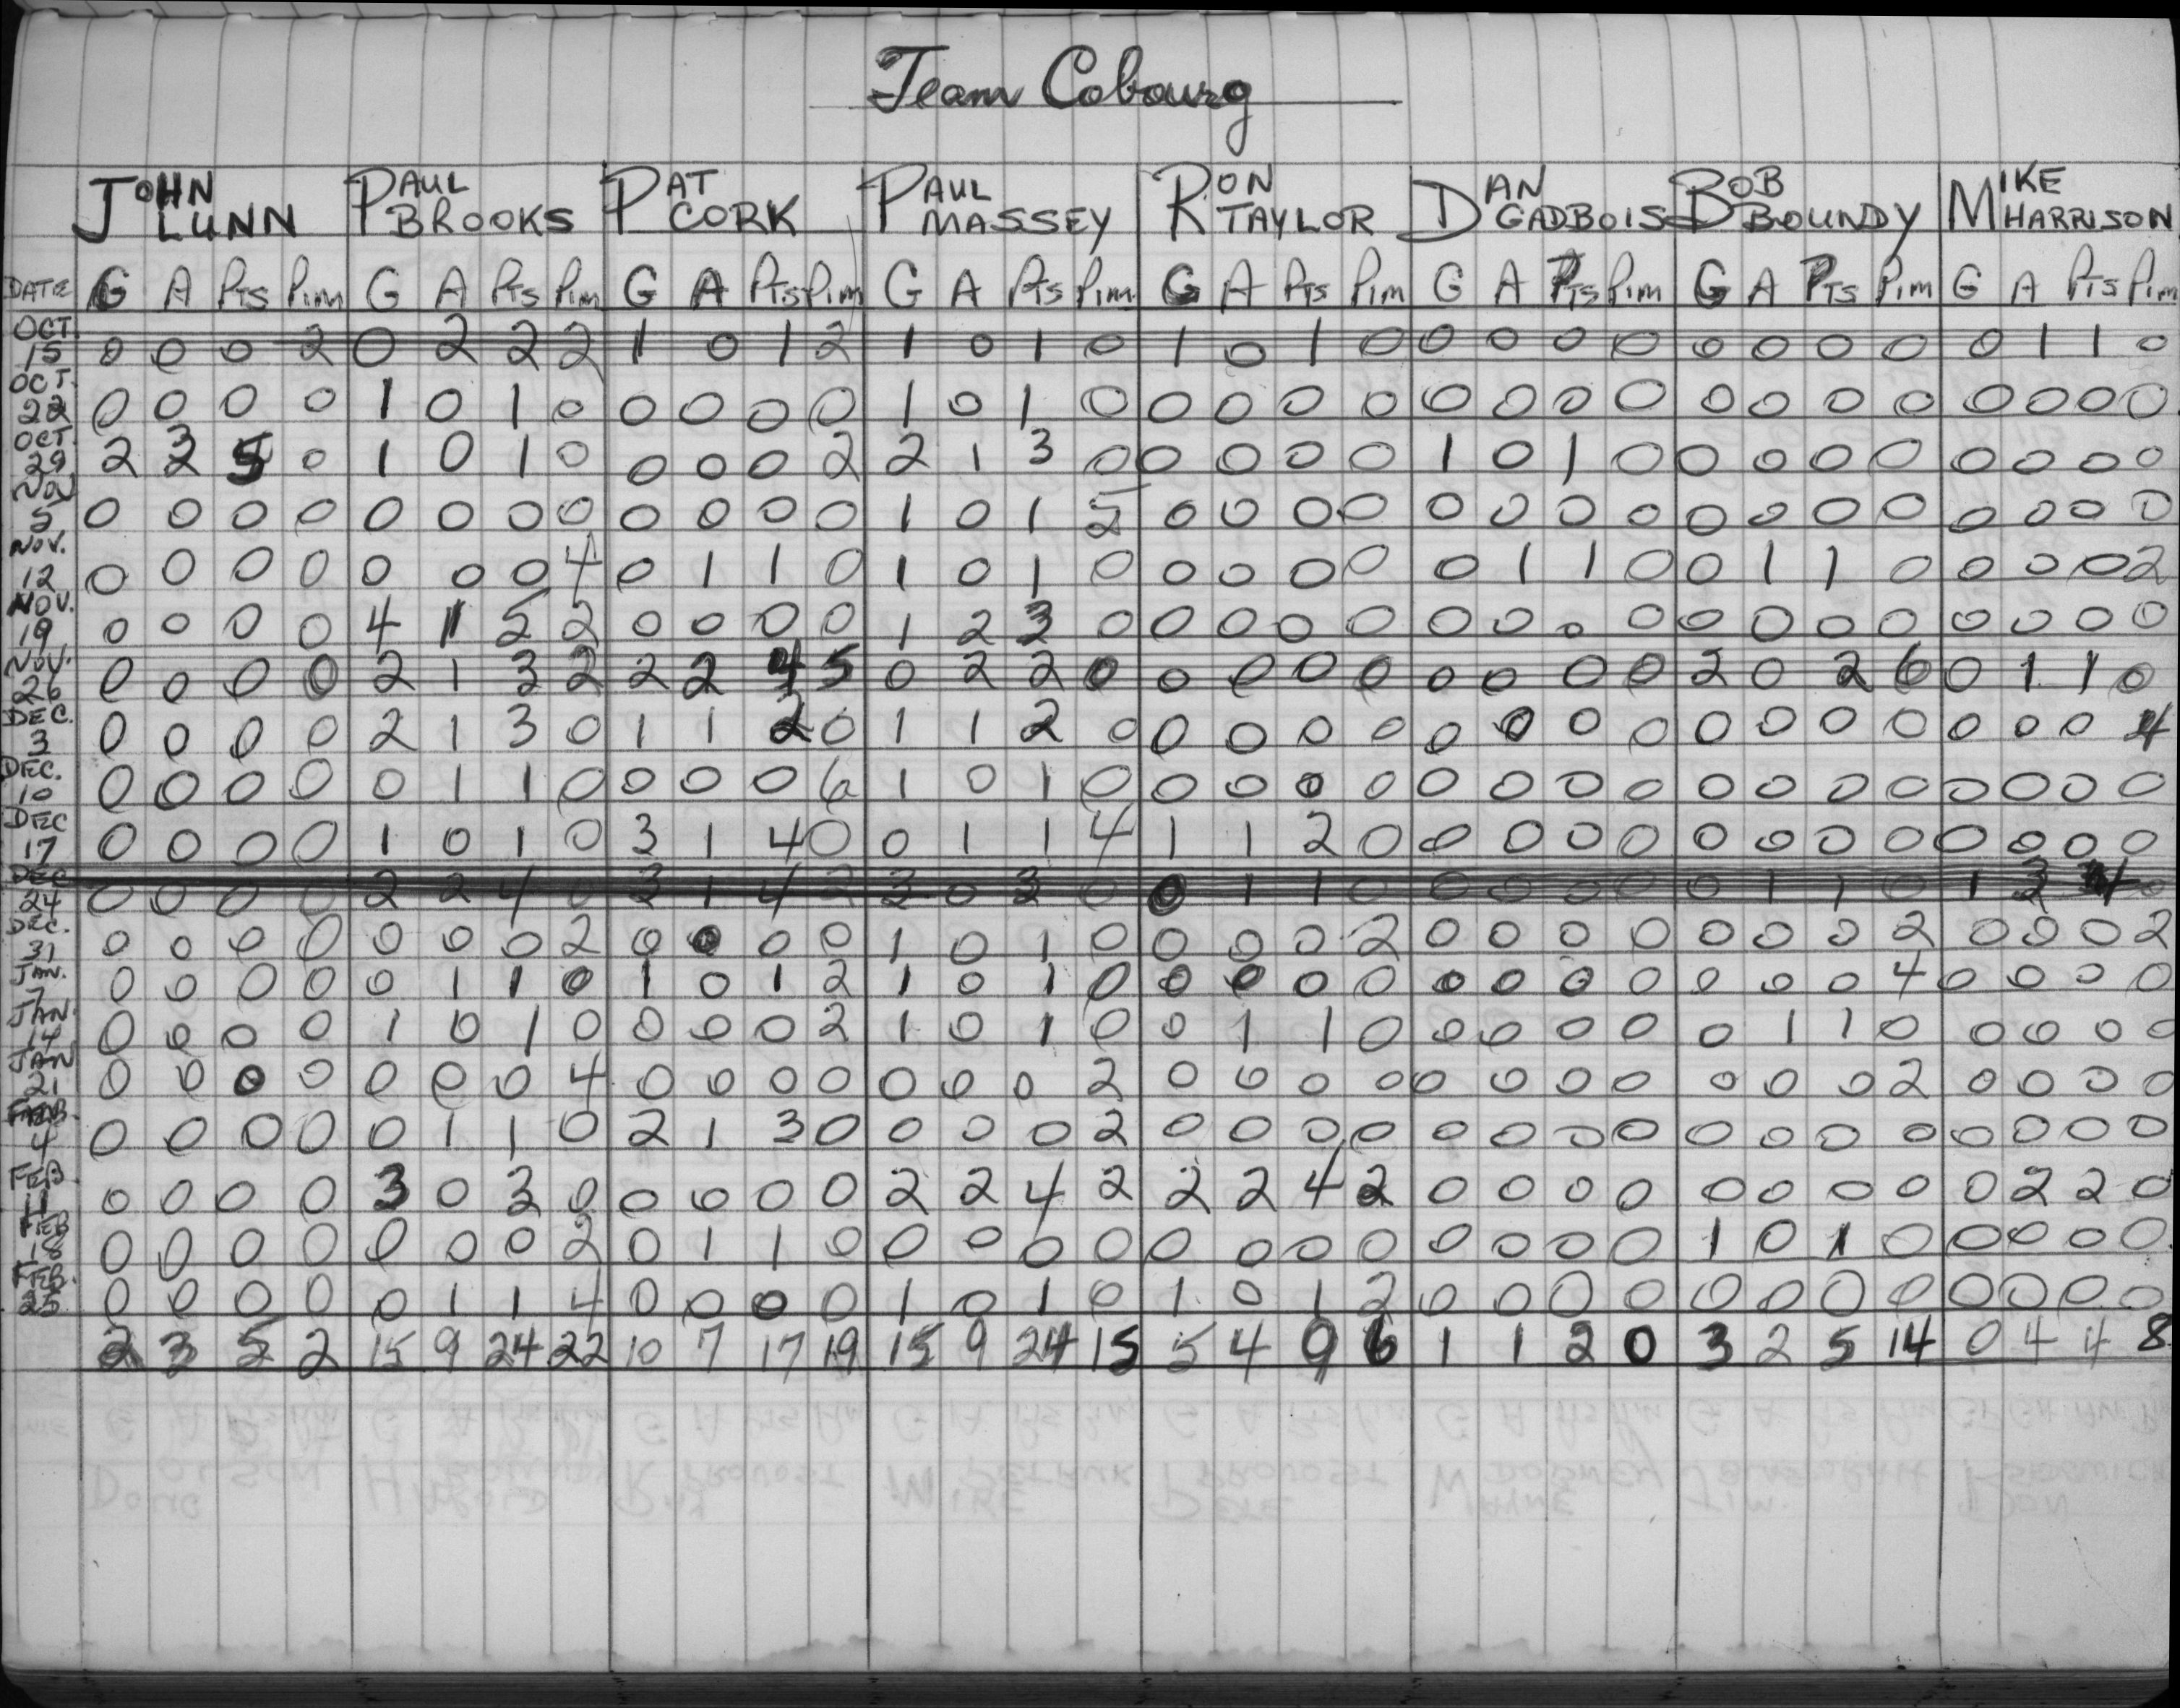 Team Cobourg
JOHN LUNN PAUL BROOKS PAT CORK PAUL MASSEY RON TAYLOR DAN GADBOIS BOB BOUNDY MIKE HARRISON
DATE G A Pts Pim G A Pts Pim G A Pts Pim G A Pts Pim G A Pts Pim G A Pts Pim G A Pts Pim G A Pts Pim
OCT. 15 0 0 0 2 0 2 2 2 1 0 1 2 1 0 1 0 1 0 1 0 0 0 0 0 0 0 0 0 0 1 1 0
OCT. 22 0 0 0 0 1 0 1 0 0 0 0 0 1 0 1 0 0 0 0 0 0 0 0 0 0 0 0 0 0 0 0 0
OCT. 29 2 3 5 0 1 0 1 0 0 0 0 2 2 1 3 0 0 0 0 0 1 0 1 0 0 0 0 0 0 0 0 0
NOV 5 0 0 0 0 0 0 0 0 0 0 0 0 1 0 1 5 0 0 0 0 0 0 0 0 0 0 0 0 0 0 0 0
NOV. 12 0 0 0 0 0 0 0 4 0 1 1 0 1 0 1 0 0 0 0 0 0 1 1 0 0 1 1 0 0 0 0 2
NOV. 19 0 0 0 0 4 1 5 2 0 0 0 0 1 2 3 0 0 0 0 0 0 0 0 0 0 0 0 0 0 0 0 0
NOV. 26 0 0 0 0 2 1 3 2 2 2 4 5 0 2 2 0 0 0 0 0 0 0 0 0 2 0 2 6 0 1 1 0
DEC. 3 0 0 0 0 2 1 3 0 1 1 2 0 1 1 2 0 0 0 0 0 0 0 0 0 0 0 0 0 0 0 0 4
DEC. 10 0 0 0 0 0 1 1 0 0 0 0 6 1 0 1 0 0 0 0 0 0 0 0 0 0 0 0 0 0 0 0 0
DEC 17 0 0 0 0 1 0 1 0 3 1 4 0 0 1 1 4 1 1 2 0 0 0 0 0 0 0 0 0 0 0 0 0
DEC 24 0 0 0 0 2 2 4 0 3 1 4 2 3 0 3 0 0 1 1 0 0 0 0 0 0 1 1 0 1 3 4 0
DEC. 31 0 0 0 0 0 0 0 2 0 0 0 0 1 0 1 0 0 0 0 2 0 0 0 0 0 0 0 2 0 0 0 2
JAN. 7 0 0 0 0 0 1 1 0 1 0 1 2 1 0 1 0 0 0 0 0 0 0 0 0 0 0 0 4 0 0 0 0
JAN. 14 0 0 0 0 1 0 1 0 0 0 0 2 1 0 1 0 0 1 1 0 0 0 0 0 0 1 1 0 0 0 0 0
JAN 21 0 0 0 0 0 0 0 4 0 0 0 0 0 0 0 2 0 0 0 0 0 0 0 0 0 0 0 2 0 0 0 0
FEB. 4 0 0 0 0 0 1 1 0 2 1 3 0 0 0 0 2 0 0 0 0 0 0 0 0 0 0 0 0 0 0 0 0
FEB 11 0 0 0 0 3 0 3 0 0 0 0 0 2 2 4 2 2 2 4 2 0 0 0 0 0 0 0 0 0 2 2 0
FEB 18 0 0 0 0 0 0 0 2 0 1 1 0 0 0 0 0 0 0 0 0 0 0 0 0 1 0 1 0 0 0 0 0
FEB. 25 0 0 0 0 0 1 1 4 0 0 0 0 1 0 1 0 1 0 1 2 0 0 0 0 0 0 0 0 0 0 0 0
2 3 5 2 15 9 24 22 10 7 17 19 15 9 24 15 5 4 9 6 1 1 2 0 3 2 5 14 0 4 4 8